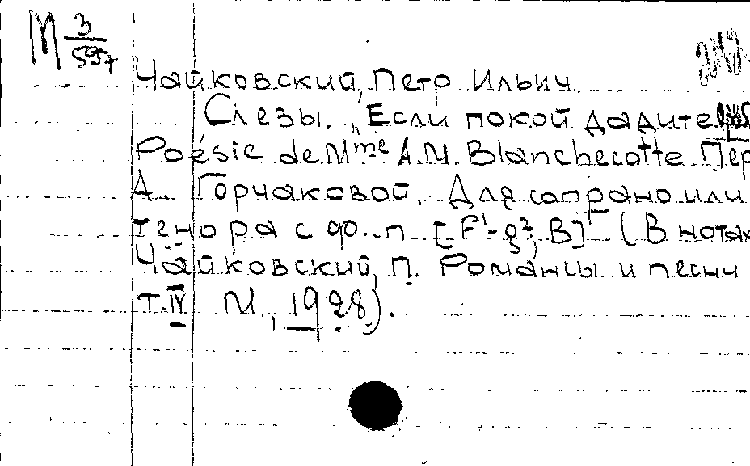 М 3/597
Чайковский, Петр Ильич
Слезы. „Если покой дадите
Poésie de Mme A.M. Blanchecotte. Пер
А. Горчаковой. Для сопрано или
тенора с ф.-п. [F¹-g², B] (В нотах
Чайковский, П. Романсы и песни
т. IV М., 1928).